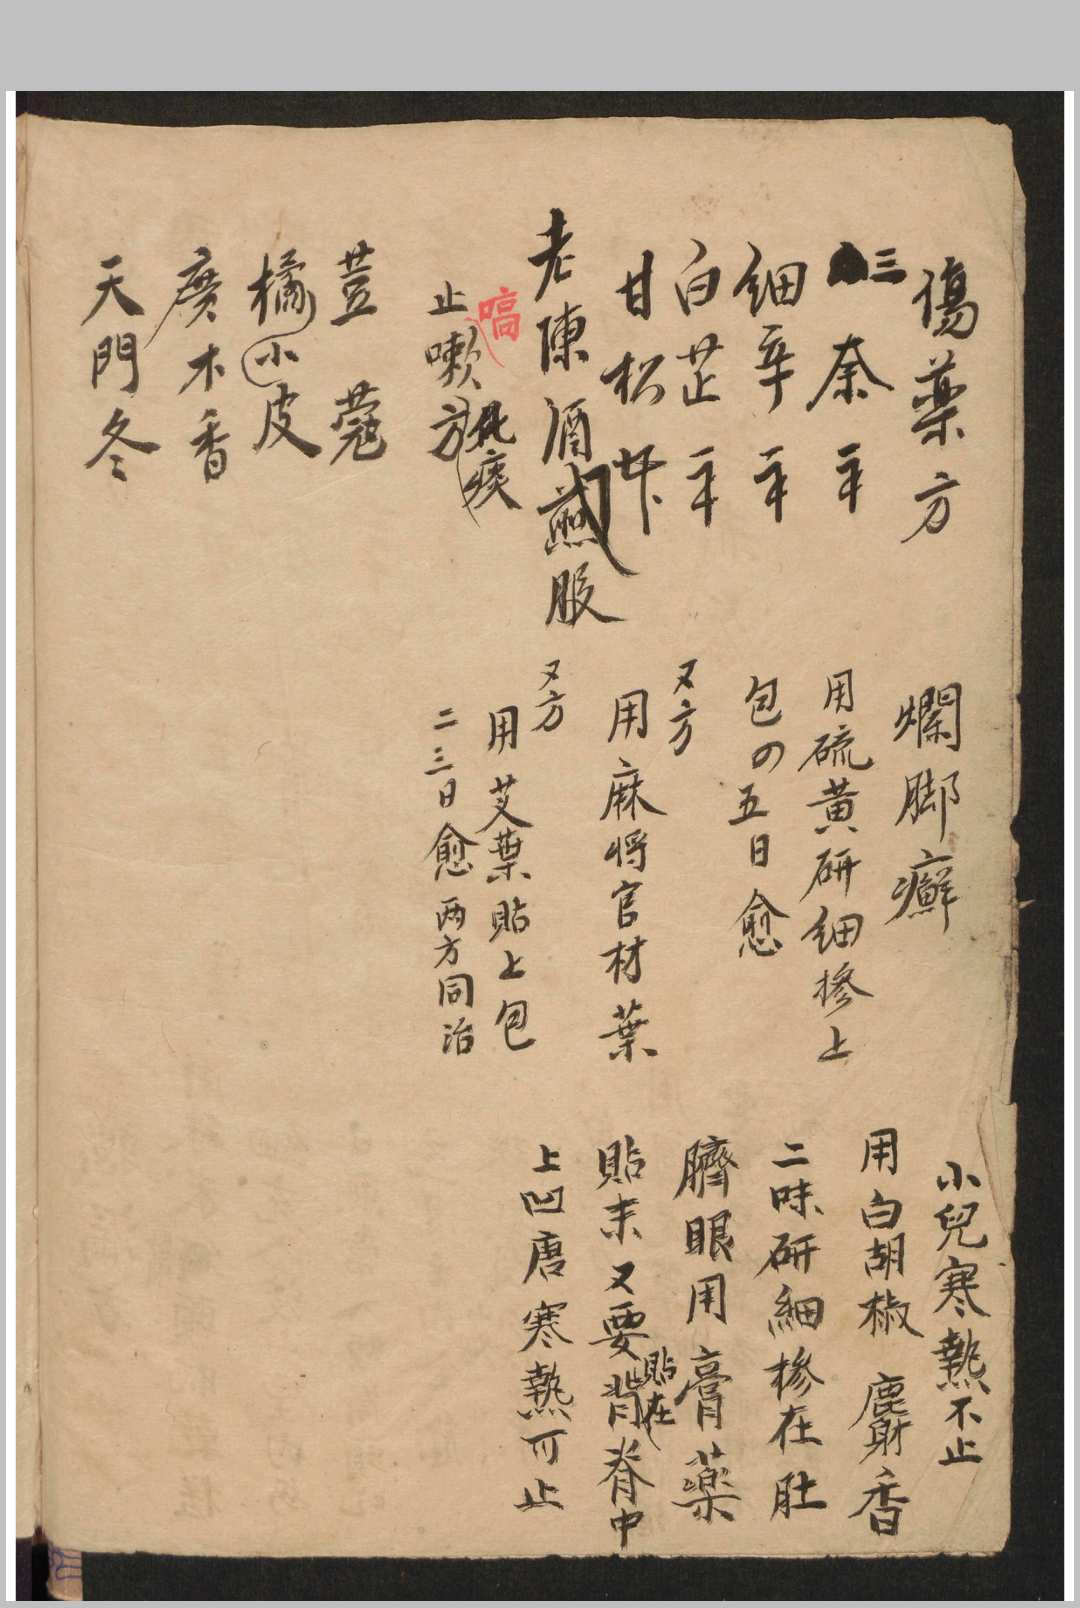 傷藥方
三奈
細辛
白芷
甘松
老陳酒煎服
止嗽方
嗃
化痰
荳蔻
橘小皮
廣木香
天門冬
爛脚癬
用硫黃研細摻上
包の五日愈
又方
用麻將官材葉
又方
用艾葉貼上包
二三日愈 两方同治
小兒寒熱不止
用白胡椒 麝香
二味研細摻在肚
臍眼用膏藥
貼末又要貼在背脊中
上凹唐寒熱可止